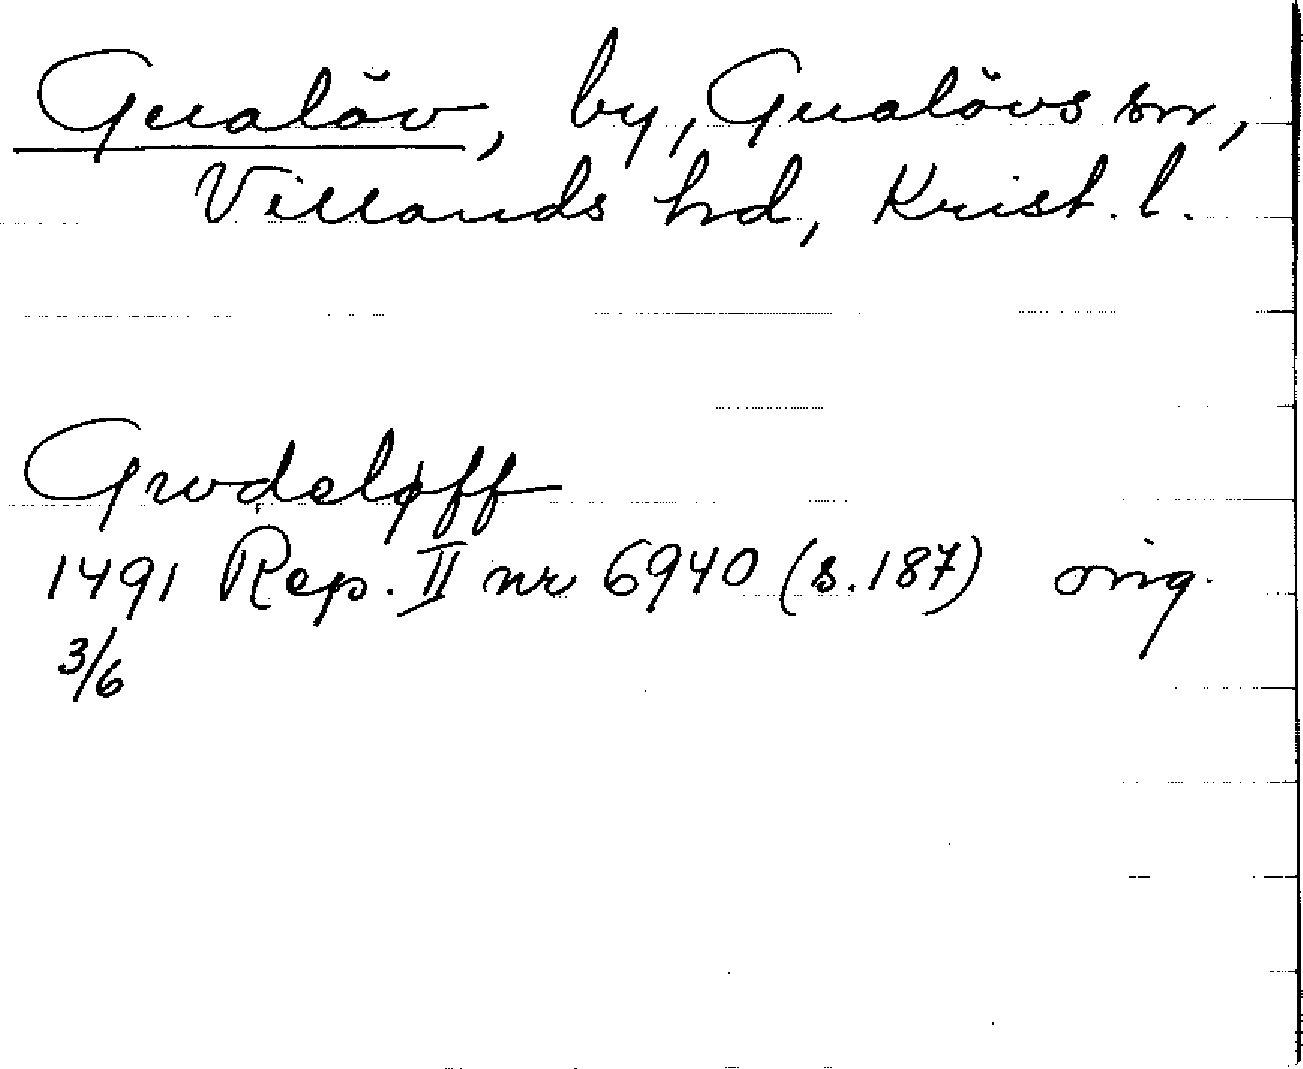 Gualöv, by, Gualövs sn,
Villands hd, Krist. l.
Gwdeløff
1491 Rep. II nr 6940 (s. 187) orig.
3/6